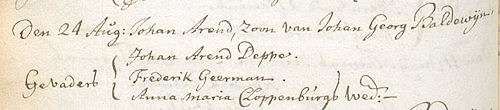 Den 24 Aug: Johan Arend, zoon van Johan Georg Baldewijn,
Johan Arend Deppe.
Gevaders Frederik Geerman.
Anna Maria Cloppenburgs Wed: